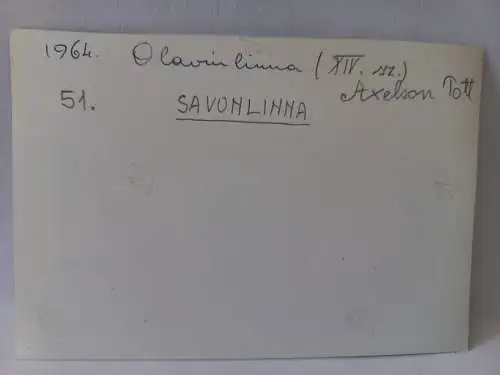 1964. Olavinlinna (XIV. sz.)
Axelson Tott
51. SAVONLINNA